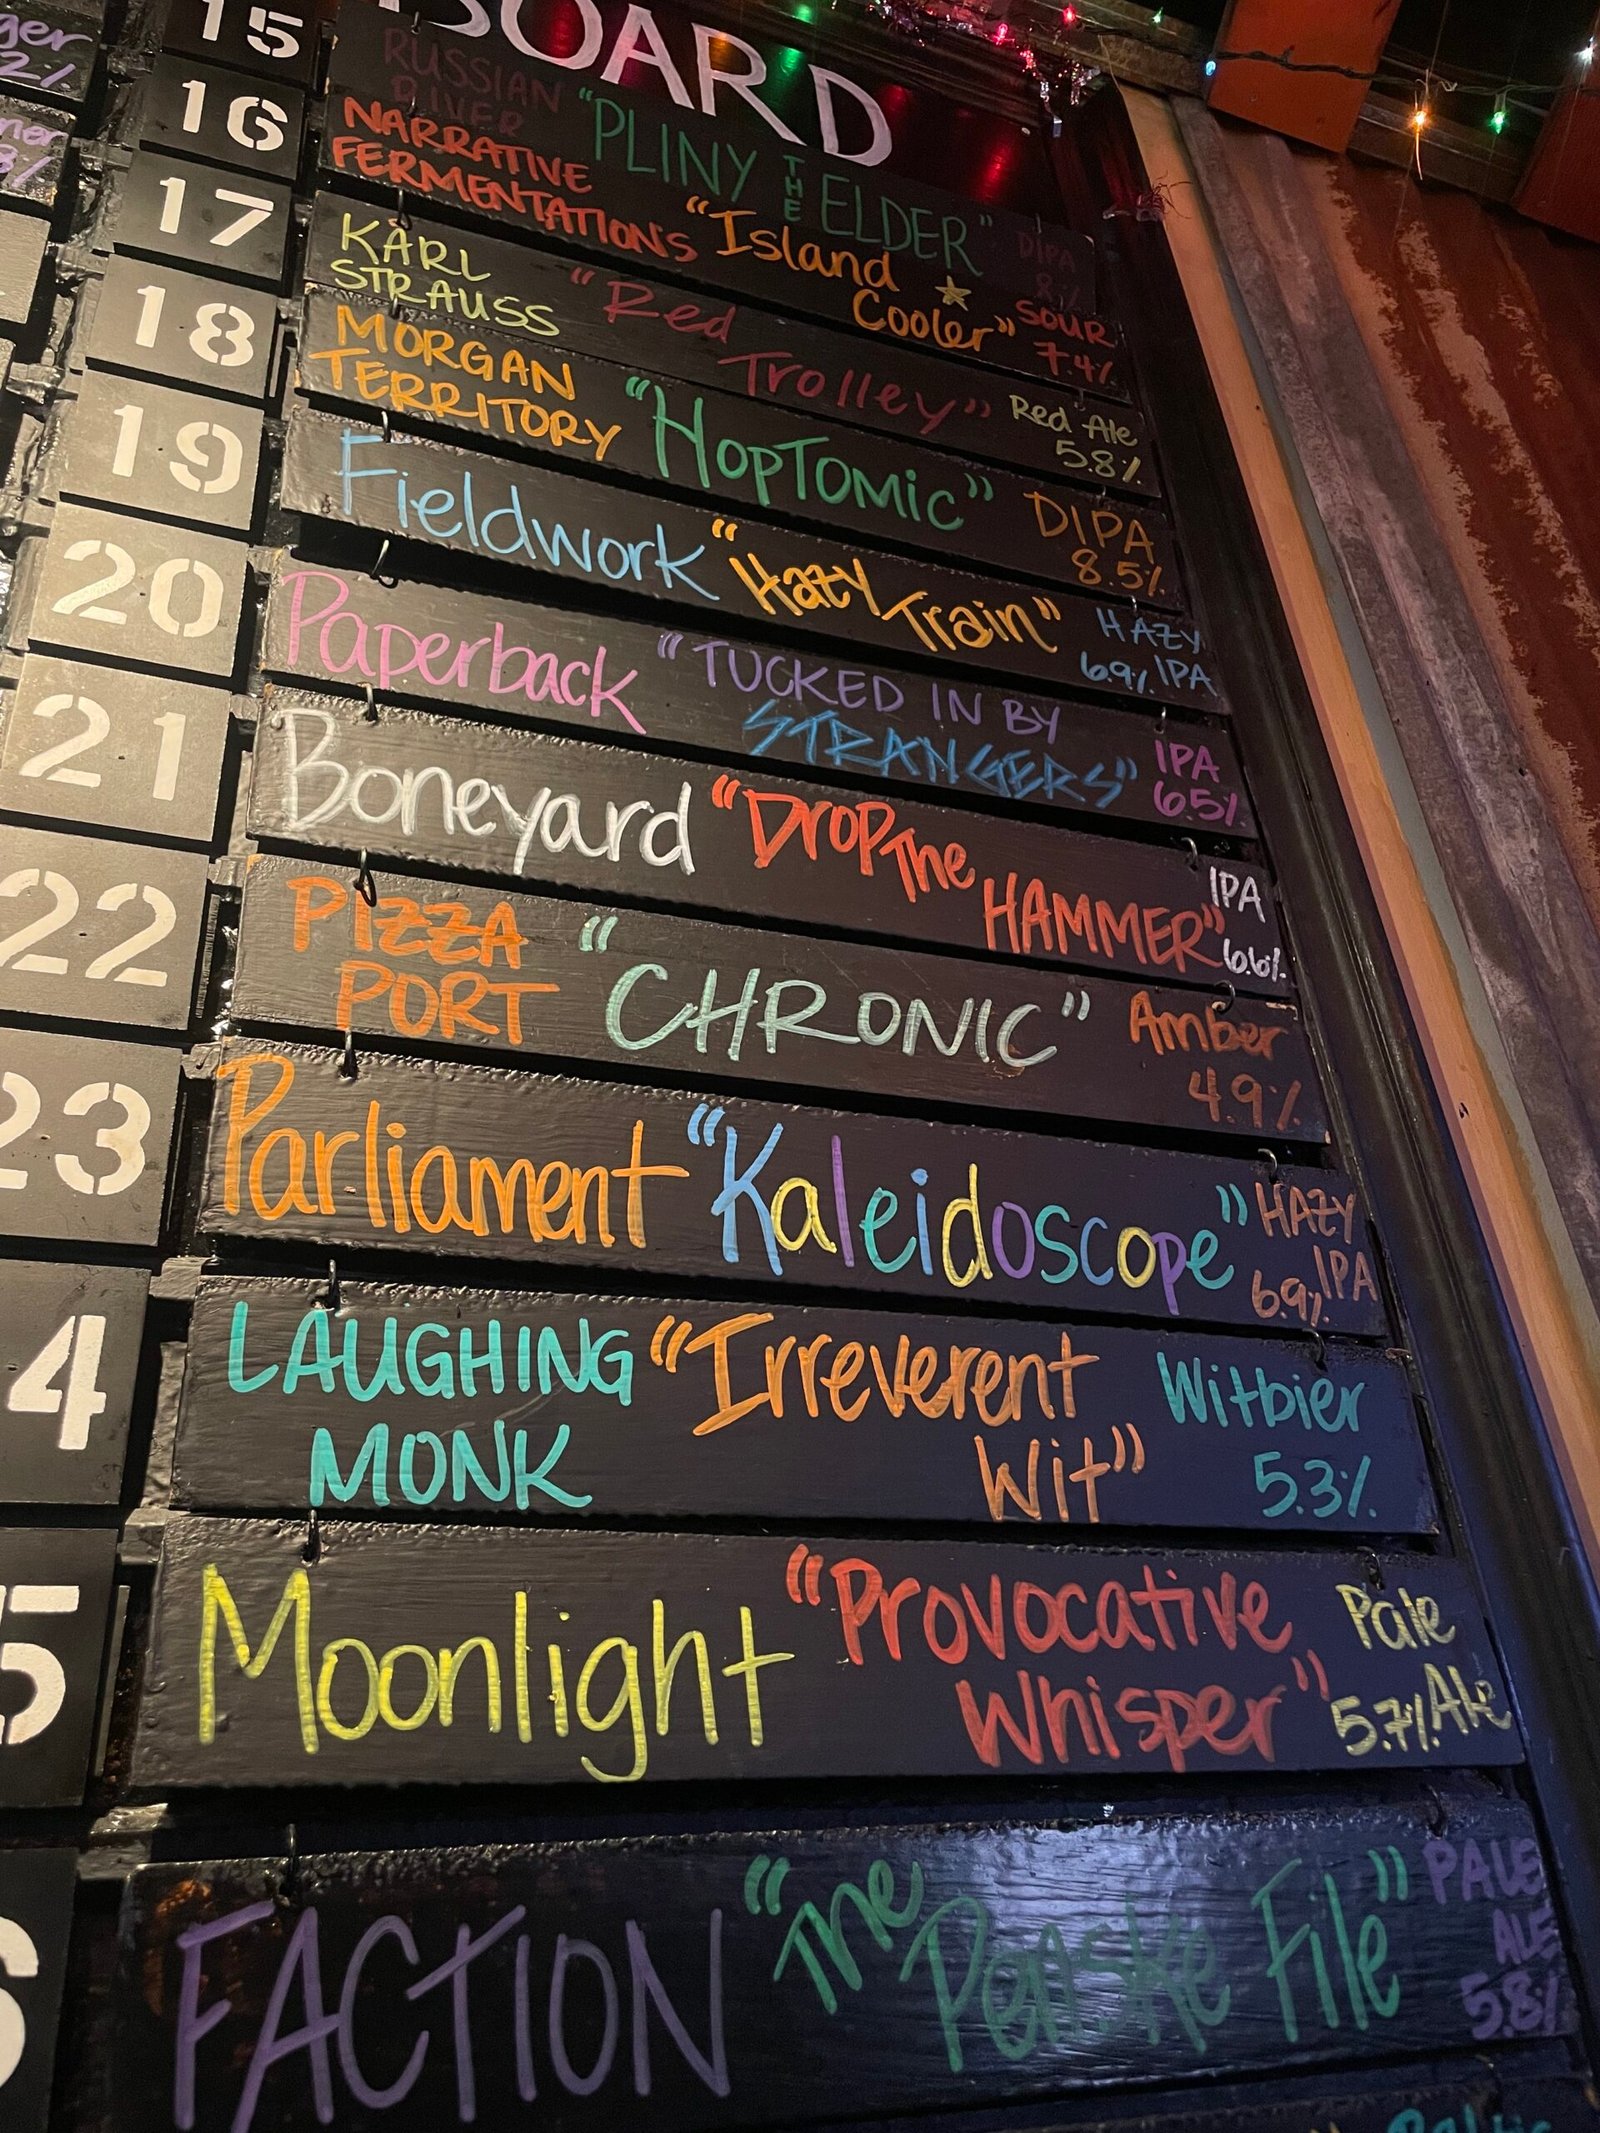 BOARD
15
RUSSIAN RIVER "PLINY THE ELDER" DIPA 8%
16
NARRATIVE FERMENTATIONS "Island Cooler" SOUR 7.4%
17
KARL STRAUSS "Red Trolley" Red Ale 5.8%
18
MORGAN TERRITORY "HOPTOMIC" DIPA 8.5%
19
Fieldwork "Hazy Train" HAZY IPA 6.9%
20
Paperback "TUCKED IN BY STRANGERS" IPA 6.5%
21
Boneyard "Drop The HAMMER" IPA 6.6%
22
PIZZA PORT "CHRONIC" Amber 4.9%
23
Parliament "Kaleidoscope" HAZY IPA 6.9%
4
LAUGHING MONK "Irreverent Wit" Witbier 5.3%
5
Moonlight "Provocative Whisper" Pale Ale 5.7%
6
FACTION "The Penske File" PALE ALE 5.8%